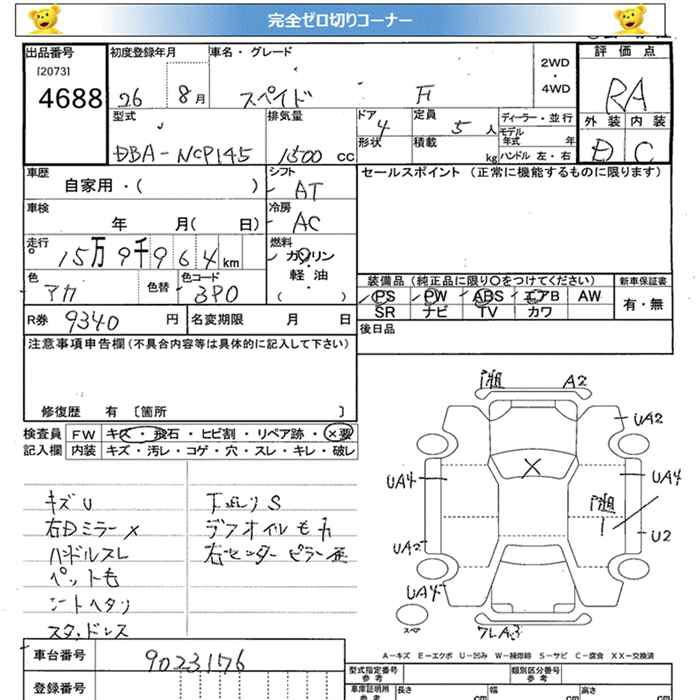 完全ゼロ切りコーナー
出品番号 初度登録年月 車名・グレード 評価点
[2073]
4688 26 8月 スペイド F 2WD・4WD RA
型式 排気量 ドア 定員 ディーラー・並行 外装 内装
DBA-NCP145 1500 cc 4 5人 モデル年式 年 D C
形状 積載 kg ハンドル 左・右
車歴 シフト セールスポイント(正常に機能するものに限ります)
自家用・( ) AT
車検 冷房
年 月( 日) AC
走行 燃料
15万9千964km ガソリン・軽油
( )
色 色替 色コード 装備品(純正品に限り○をつけてください) 新車保証書
アカ 3P0 PS PW ABS エアB AW 有・無
SR ナビ TV カワ
R券 9340 円 名変期限 月 日 後日品
注意事項申告欄(不具合内容等は具体的に記入して下さい)
修復歴 有 〔箇所 〕
検査員 FW キズ・飛石・ヒビ割・リペア跡・×要
記入欄 内装 キズ・汚レ・コゲ・穴・スレ・キレ・破レ
キズU
右Dミラー×
ハンドルスレ
ペット毛
シートヘタリ
スタッドレス
下廻りS
デフオイルモレ
右センターピラー
A2
UA2
×
UA4 UA4
U2
UA2
UA4
スペア
A-キズ E-エクボ U-凹み W-補修跡 S-サビ C-腐食 XX-交換済
車台番号 9023176
登録番号
型式指定番号 参考 類別区分番号 参考
車庫証明用 参考 長さ cm 幅 cm 高さ cm